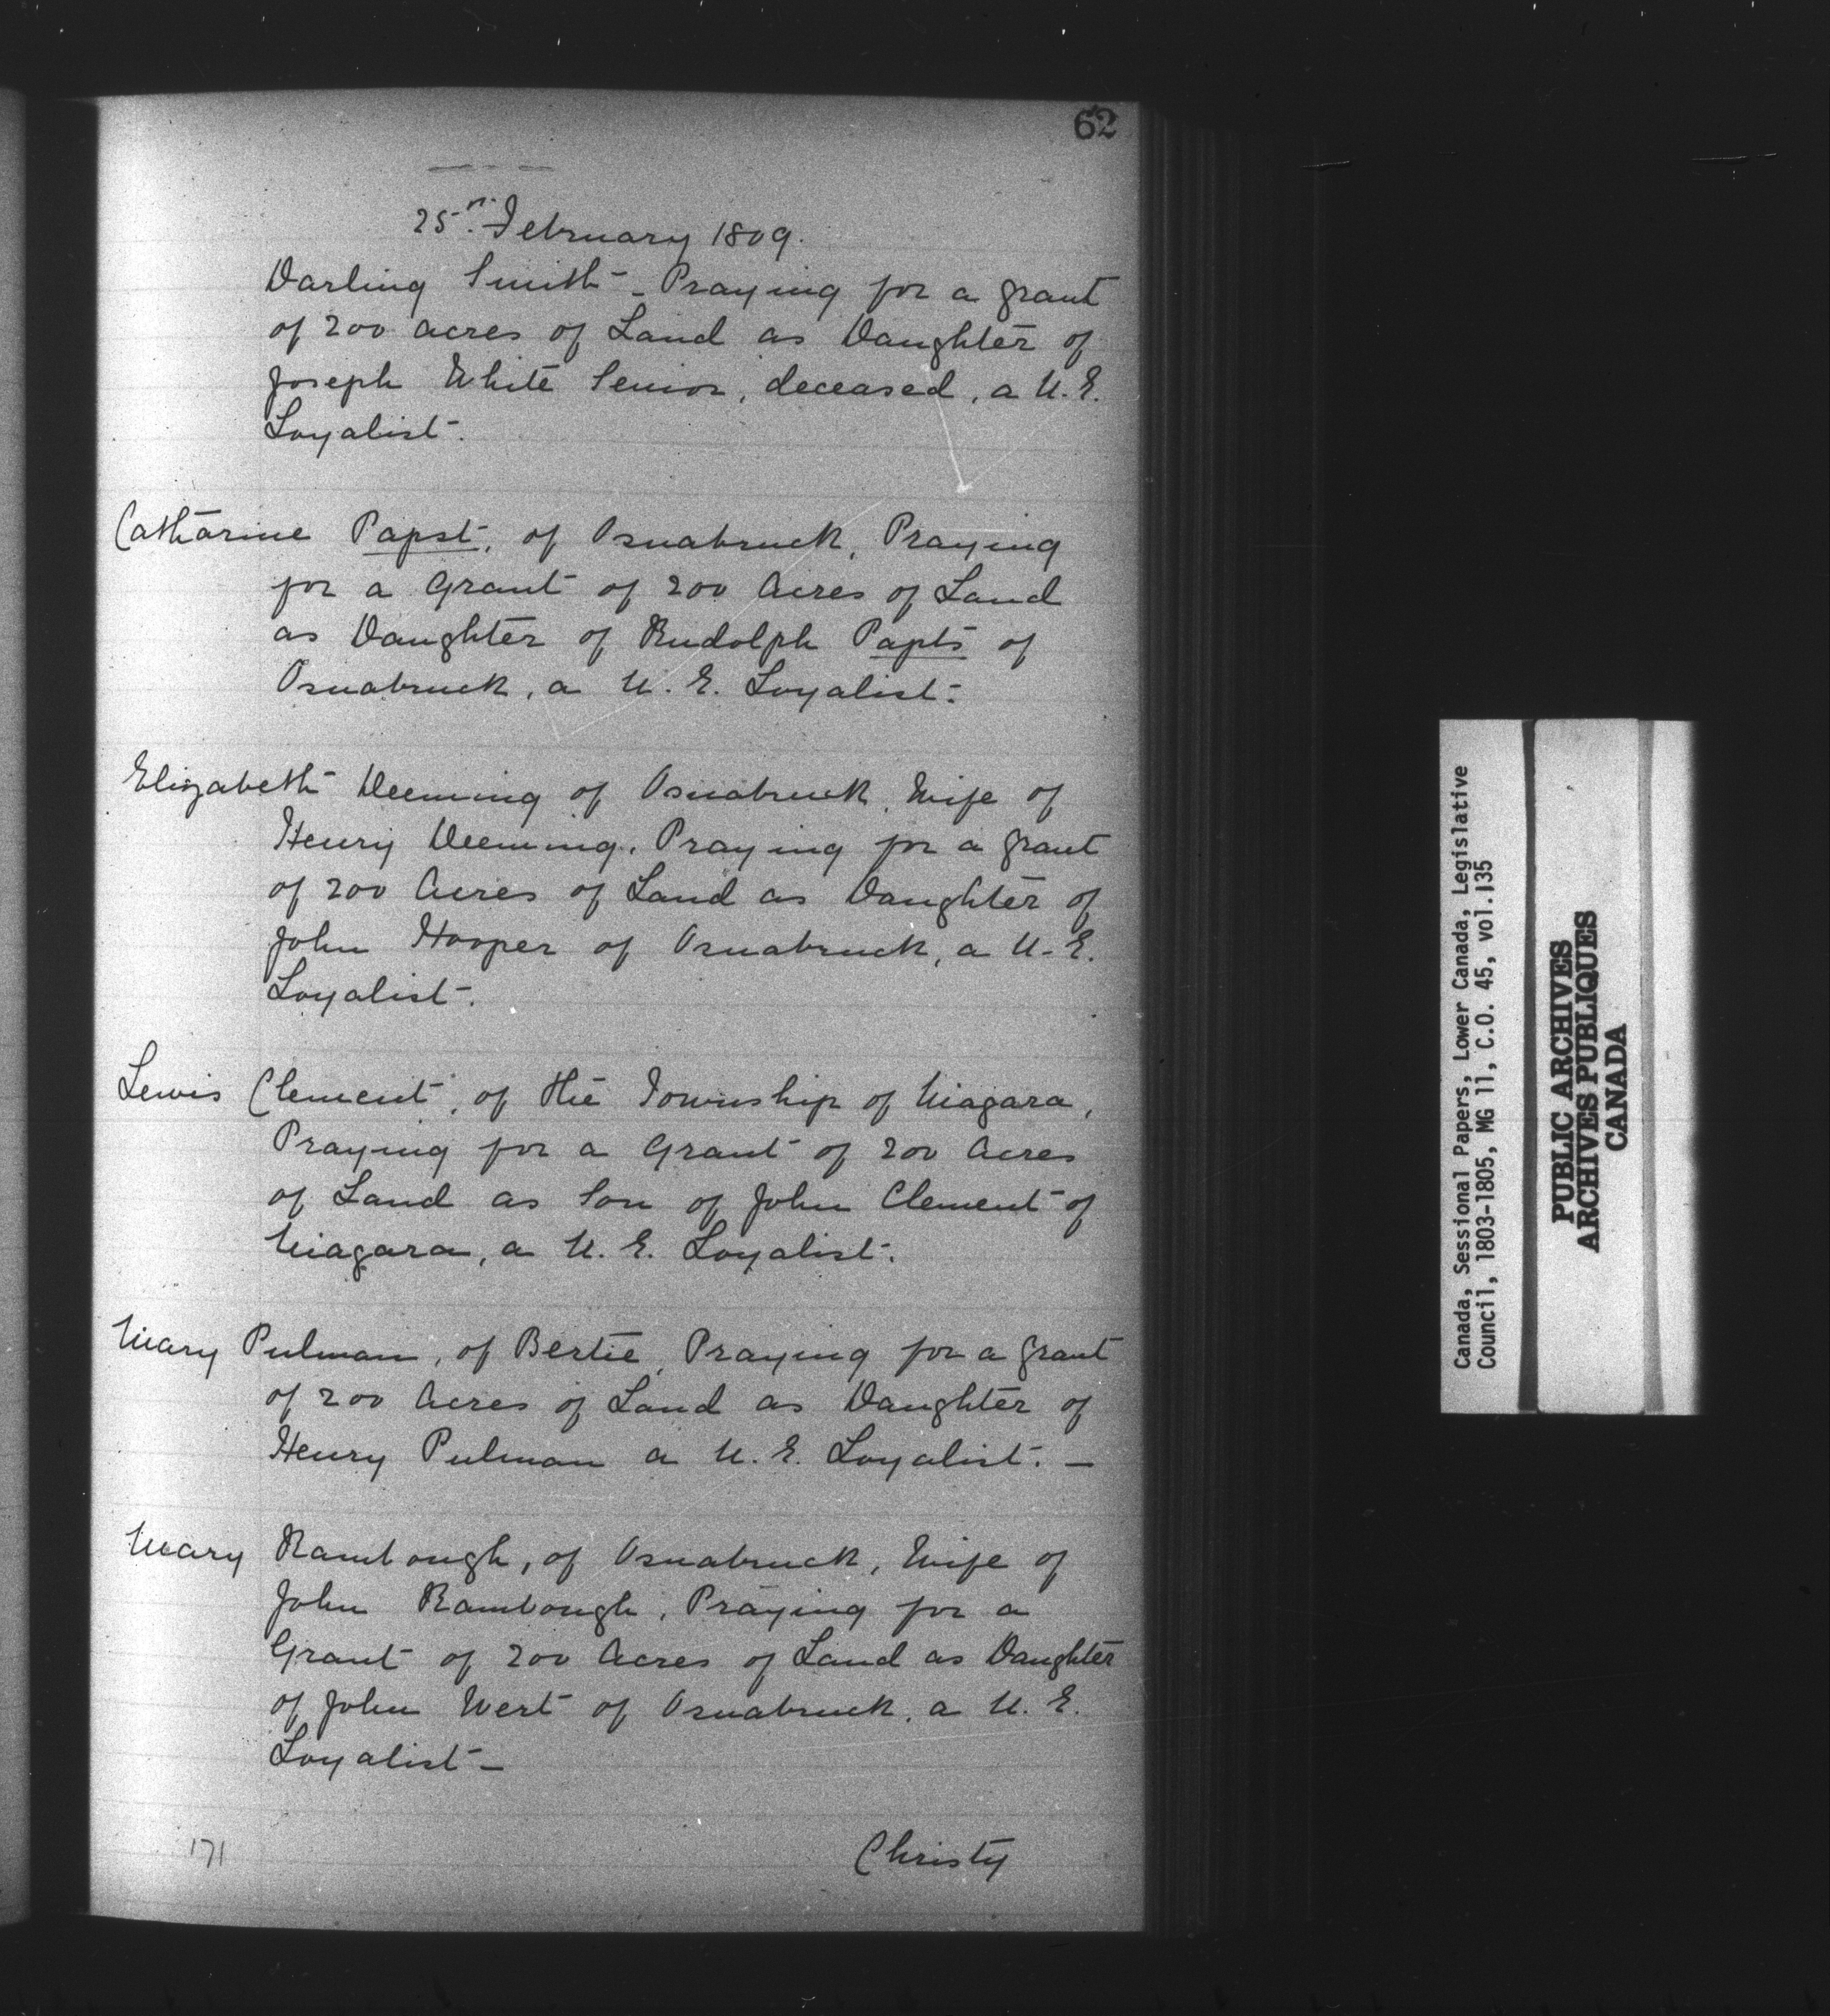 62
25th. February 1809.
Darling Smith - Praying for a grant
of 200 acres of Land as Daughter of
Joseph White Senior, deceased, a U.E.
Loyalist.
Catharine Papst, of Osnabruck, Praying
for a Grant of 200 Acres of Land
as Daughter of Rudolph Papts of
Osnabruck, a U.E. Loyalist.
Elizabeth Deeming of Osnabruck, Wife of
Henry Deeming, Praying for a grant
of 200 Acres of Land as Daughter of
John Hooper of Osnabruck, a U.E.
Loyalist.
Lewis Clement, of the Township of Niagara,
Praying for a Grant of 200 Acres
of Land as Son of John Clement of
Niagara, a U.E. Loyalist.
Mary Pulman, of Bertie, Praying for a grant
of 200 Acres of Land as Daughter of
Henry Pulman a U.E. Loyalist. -
Mary Rambough, of Osnabruck, Wife of
John Rambough, Praying for a
Grant of 200 Acres of Land as Daughter
of John Wert of Osnabruck, a U.E.
Loyalist -
171
Christy
Canada, Sessional Papers, Lower Canada, Legislative
Council, 1803-1805, MG 11, C.O. 45, vol.135
PUBLIC ARCHIVES
ARCHIVES PUBLIQUES
CANADA